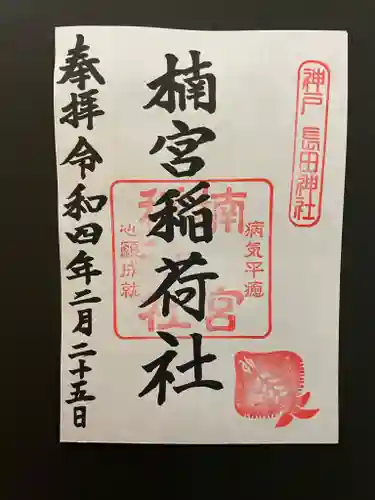 神戸 長田神社
病気平癒
楠宮稲荷社
楠宮
稲荷社
心願成就
奉拝 令和四年二月二十五日